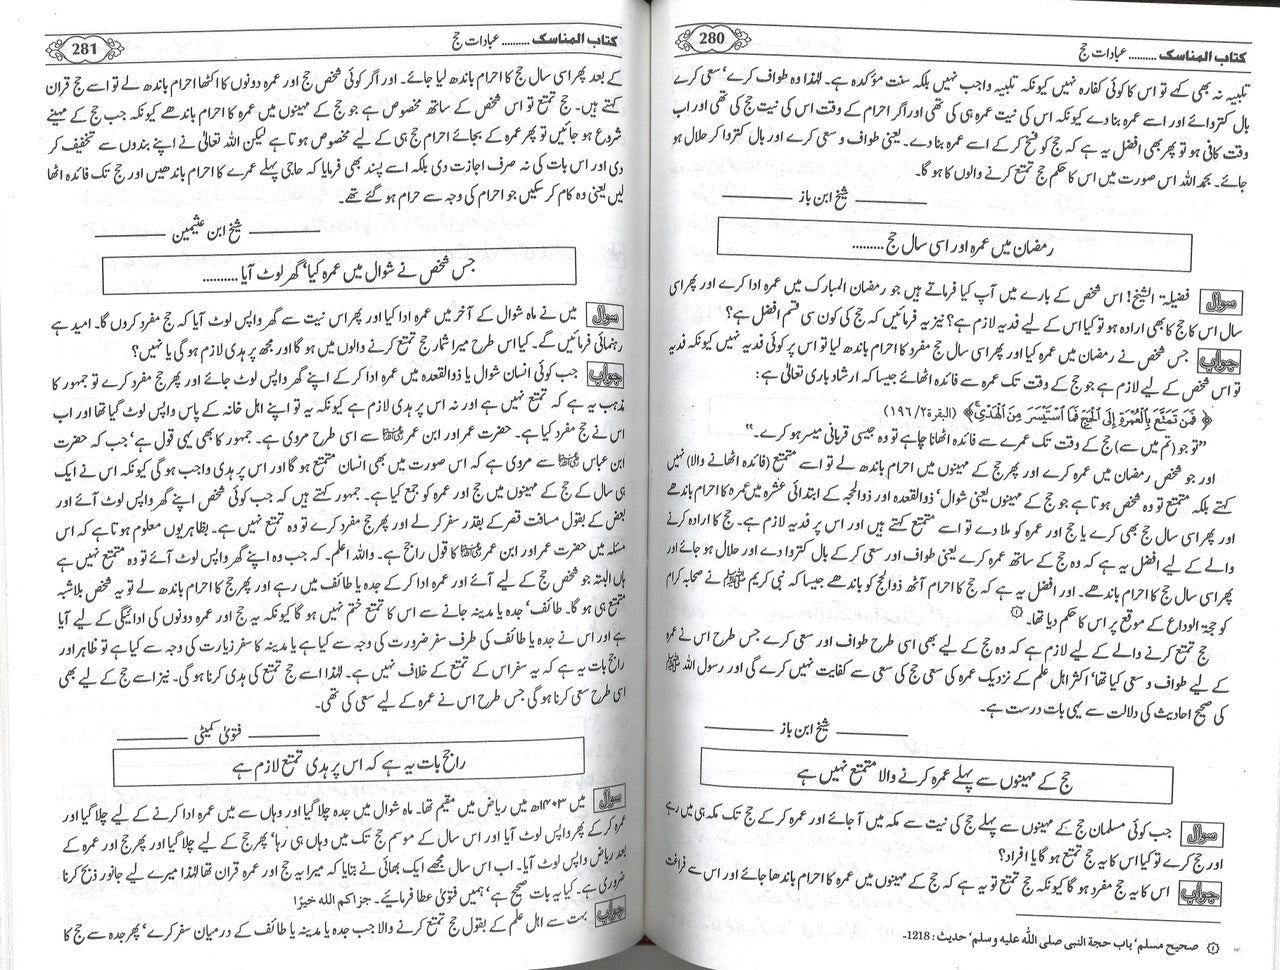 کتاب المناسک .......... عبادات حج
280
تلبیہ نہ بھی کہے تو اس کا کوئی کفارہ نہیں کیونکہ تلبیہ واجب نہیں بلکہ سنت مؤکدہ ہے۔ لہٰذا وہ طواف کرے' سعی کرے
بال کتروائے اور اسے عمرہ بنا دے کیونکہ اس کی نیت عمرہ ہی کی تھی اور اگر احرام کے وقت اس کی نیت حج کی تھی اور اب
وقت کافی ہو تو پھر بھی افضل یہ ہے کہ حج کو فسخ کر کے اسے عمرہ بنا دے۔ یعنی طواف و سعی کرے اور بال کتروا کر حلال ہو
جائے۔ بحمد اللہ اس صورت میں اس کا حکم حج تمتع کرنے والوں کا ہو گا۔
شیخ ابن باز
رمضان میں عمرہ اور اسی سال حج .........
سوال فضیلۃ الشیخ! اس شخص کے بارے میں آپ کیا فرماتے ہیں جو رمضان المبارک میں عمرہ ادا کرے اور پھر اسی
سال اس کا حج کا بھی ارادہ ہو تو کیا اس کے لیے فدیہ لازم ہے؟ نیز یہ فرمائیں کہ حج کی کون سی قسم افضل ہے؟
جواب جس شخص نے رمضان میں عمرہ کیا اور پھر اسی سال حج مفرد کا احرام باندھ لیا تو اس پر کوئی فدیہ نہیں کیونکہ فدیہ
تو اس شخص کے لیے لازم ہے جو حج کے وقت تک عمرہ سے فائدہ اٹھائے جیسا کہ ارشاد باری تعالیٰ ہے:
﴿ فَمَن تَمَتَّعَ بِالْعُمْرَةِ إِلَى الْحَجِّ فَمَا اسْتَيْسَرَ مِنَ الْهَدْيِ ﴾ (البقرۃ ۲/ ۱۹۶)
"تو جو (تم میں سے) حج کے وقت تک عمرے سے فائدہ اٹھانا چاہے تو وہ جیسی قربانی میسر ہو کرے۔"
اور جو شخص رمضان میں عمرہ کرے اور پھر حج کے مہینوں میں احرام باندھ لے تو اسے متمتع (فائدہ اٹھانے والا) نہیں
کہتے بلکہ متمتع تو وہ شخص ہوتا ہے جو حج کے مہینوں یعنی شوال' ذوالقعدہ اور ذوالحجہ کے ابتدائی عشرہ میں عمرہ کا احرام باندھے
پھر اسی سال حج بھی کرے یا حج اور عمرہ کو ملا دے تو اسے متمتع کہتے ہیں اور اس پر فدیہ لازم ہے۔ حج کا ارادہ کرنے
والے کے لیے افضل یہ ہے کہ وہ حج کے ساتھ عمرہ کرے یعنی طواف اور سعی کر کے بال کتروا دے اور حلال ہو جائے اور
پھر اسی سال حج کا احرام باندھے۔ اور افضل یہ ہے کہ حج کا احرام آٹھ ذوالحج کو باندھے جیسا کہ نبی کریم ﷺ نے صحابہ کرام
کو حجۃ الوداع کے موقع پر اس کا حکم دیا تھا۔ ۱
حج تمتع کرنے والے کے لیے لازم ہے کہ وہ حج کے لیے بھی اسی طرح طواف اور سعی کرے جس طرح اس نے عمرہ
کے لیے طواف و سعی کیا تھا' اکثر اہل علم کے نزدیک عمرہ کی سعی حج کی سعی سے کفایت نہیں کرے گی اور رسول اللہ ﷺ
کی صحیح احادیث کی دلالت سے یہی بات درست ہے۔
شیخ ابن باز
حج کے مہینوں سے پہلے عمرہ کرنے والا متمتع نہیں ہے
سوال جب کوئی مسلمان حج کے مہینوں سے پہلے حج کی نیت سے مکہ میں آ جائے اور عمرہ کر کے حج تک مکہ ہی میں رہے
اور حج کرے تو کیا اس کا یہ حج تمتع ہو گا یا افراد؟
جواب اس کا یہ حج مفرد ہو گا کیونکہ حج تمتع تو یہ ہے کہ حج کے مہینوں میں عمرہ کا احرام باندھا جائے اور اس سے فراغت
۱ صحیح مسلم' باب حجة النبی صلی اللہ علیہ وسلم' حدیث: 1218۔
کتاب المناسک .......... عبادات حج
281
کے بعد پھر اسی سال حج کا احرام باندھ لیا جائے۔ اور اگر کوئی شخص حج اور عمرہ دونوں کا اکٹھا احرام باندھ لے تو اسے حج قران
کہتے ہیں۔ حج تمتع تو اس شخص کے ساتھ مخصوص ہے جو حج کے مہینوں میں عمرہ کا احرام باندھے کیونکہ جب حج کے مہینے
شروع ہو جائیں تو پھر عمرہ کے بجائے احرام حج ہی کے لیے مخصوص ہوتا ہے لیکن اللہ تعالیٰ نے اپنے بندوں سے تخفیف کر
دی اور اس بات کی نہ صرف اجازت دی بلکہ اسے پسند بھی فرمایا کہ حاجی پہلے عمرے کا احرام باندھیں اور حج تک فائدہ اٹھا
لیں یعنی وہ کام کر سکیں جو احرام کی وجہ سے حرام ہو گئے تھے۔
شیخ ابن عثیمین
جس شخص نے شوال میں عمرہ کیا' گھر لوٹ آیا ..........
سوال میں نے ماہ شوال کے آخر میں عمرہ ادا کیا اور پھر اس نیت سے گھر واپس لوٹ آیا کہ حج مفرد کروں گا۔ امید ہے
رہنمائی فرمائیں گے۔ کیا اس طرح میرا شمار حج تمتع کرنے والوں میں ہو گا اور مجھ پر ہدی لازم ہو گی یا نہیں؟
جواب جب کوئی انسان شوال یا ذوالقعدہ میں عمرہ ادا کر کے اپنے گھر واپس لوٹ جائے اور پھر حج مفرد کرے تو جمہور کا
مذہب یہ ہے کہ تمتع نہیں ہے اور نہ اس پر ہدی لازم ہے کیونکہ یہ تو اپنے اہل خانہ کے پاس واپس لوٹ گیا تھا اور اب
اس نے حج مفرد کیا ہے۔ حضرت عمر اور ابن عمر سے اسی طرح مروی ہے۔ جمہور کا بھی یہی قول ہے' جب کہ حضرت
ابن عباس سے مروی ہے کہ اس صورت میں بھی انسان متمتع ہو گا اور اس پر ہدی واجب ہو گی کیونکہ اس نے ایک
ہی سال کے حج کے مہینوں میں حج اور عمرہ کو جمع کیا ہے۔ جمہور کہتے ہیں کہ جب کوئی شخص اپنے گھر واپس لوٹ آئے اور
بعض کے بقول مسافت قصر کے بقدر سفر کر لے اور پھر حج مفرد کرے تو وہ تمتع نہیں ہے۔ بظاہر یوں معلوم ہوتا ہے کہ اس
مسئلہ میں حضرت عمر اور ابن عمر کا قول راجح ہے۔ واللہ اعلم۔ کہ جب وہ اپنے گھر واپس لوٹ آئے تو وہ متمتع نہیں ہے
ہاں البتہ جو شخص حج کے لیے آئے اور عمرہ ادا کر کے جدہ یا طائف میں رہے اور پھر حج کا احرام باندھ لے تو یہ شخص بلاشبہ
متمتع ہی ہو گا۔ طائف' جدہ یا مدینہ جانے سے اس کا تمتع ختم نہیں ہو گا کیونکہ یہ حج اور عمرہ دونوں کی ادائیگی کے لیے آیا
ہے اور اس نے جدہ یا طائف کی طرف سفر ضرورت کی وجہ سے کیا ہے یا مدینہ کا سفر زیارت کی وجہ سے کیا ہے تو ظاہر اور
راجح بات یہ ہے کہ یہ سفر اس کے تمتع کے خلاف نہیں ہے۔ لہٰذا اسے حج تمتع کی ہدی کرنا ہو گی۔ نیز اسے حج کے لیے بھی
اسی طرح سعی کرنا ہو گی جس طرح اس نے عمرہ کے لیے سعی کی تھی۔
فتویٰ کمیٹی
راجح بات یہ ہے کہ اس پر ہدی تمتع لازم ہے
سوال میں ۱۴۰۳ھ میں ریاض میں مقیم تھا۔ ماہ شوال میں جدہ چلا گیا اور وہاں سے میں عمرہ ادا کرنے کے لیے چلا گیا اور
عمرہ کر کے پھر واپس لوٹ آیا اور اس سال کے موسم حج تک میں وہاں ہی رہا' پھر حج کے لیے چلا گیا اور پھر حج اور عمرہ کے
بعد ریاض واپس لوٹ آیا۔ اب اس سال مجھے ایک بھائی نے بتایا کہ میرا یہ حج اور عمرہ قران تھا لہٰذا میرے لیے جانور ذبح کرنا
ضروری ہے۔ کیا یہ بات صحیح ہے' ہمیں فتویٰ عطا فرمائیے۔ جزاکم اللہ خیرًا
جواب بہت سے اہل علم کے بقول حج تمتع کرنے والا جب جدہ یا مدینہ یا طائف کے درمیان سفر کرے' پھر جدہ سے حج کا